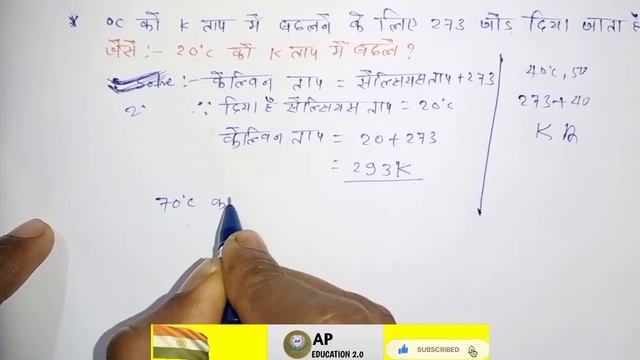 * ०C को K ताप में बदलने के लिए 273 जोड़ दिया जाता है
जैसे :- 20°C को K ताप में बदले ?
Solve :- केल्विन ताप = सेल्सियस ताप + 273
∵ दिया है सेल्सियस ताप = 20°C
केल्विन ताप = 20 + 273
= 293K
70°C क
40°C, 50
273 + 40
K
AP
EDUCATION 2.0
SUBSCRIBED